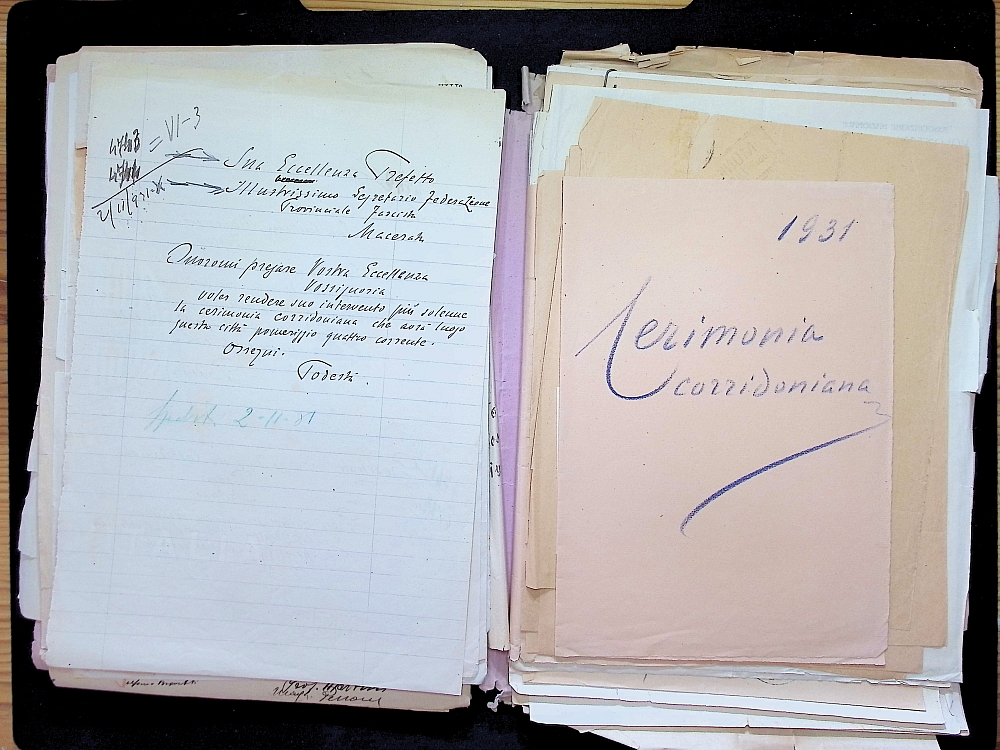 4743 = VI-3
4744
2/11/931-X
Sua Eccellenza Prefetto
Illustrissimo Segretario Federazione
Provinciale Fascista
Macerata
Onoromi pregare Vostra Eccellenza
Vossignoria
voler rendere suo intervento più solenne
la cerimonia corridoniana che avrà luogo
questa città pomeriggio quattro corrente.
Ossequi.
Podestà.
2-11-31
1931
Cerimonia
corridoniana